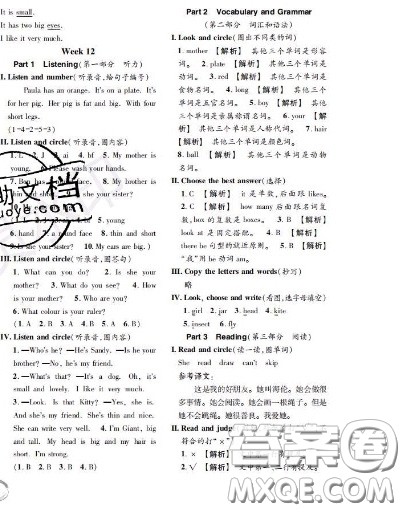 It is small.
It has two big eyes.
I like it very much.
Week 12
Part 1 Listening(第一部分 听力)
I. Listen and number(听录音,给句子编号)
Paula has an orange. It's on a plate. It's
for her pig. Her pig is fat and big. With four
short legs.
(1-4-2-5-3)
II. Listen and circle(听录音,圈内容)
1. L 2. J 3. ai 4. bf 5. My mother is
young. 6. Please wash your hands.
7. face. 8. My mother is
your sister?
young
hand round face thin and short
Is she your sister? 10. My ears are big.)
III. Listen and circle(听录音,圈答句)
1. What can you do? 2. Is she your
mother? 3. What are they? 4. How old
is your mother? 5. How are you?
6. What colour is your ruler?
(1. A 2. B 3. A 4. B 5. A 6. B)
IV. Listen and circle(听录音,圈内容)
1. —Who's he? —He's Sandy. —Is he your
brother? —No, he's my friend.
2. —What's that? —It's a dog. Oh, it's
small and lovely. I like it very much.
3. —Look. Is that Kitty? —Yes, it is.
And she's my friend. She's thin and nice.
She can write very well. 4. I'm Giant, big
and tall. My head is big and my hair is
short. I'm strong.
(1. B 2. B 3. A 4. B)
Part 2 Vocabulary and Grammar
(第二部分 词汇和语法)
I. Look and circle(圈出不同类的词)
1. mother 【解析】 其他三个单词是形容
词。 2. plate 【解析】 其他三个单词是
动词。 3. red 【解析】 其他三个单词是
食物名词。 4. long 【解析】 其他三个单
词是五官名词。 5. boy 【解析】 其他三
个单词是亲属称谓名词。 6. your 【解
析】 其他三个单词是人称代词。 7. hair
【解析】 其他三个单词是颜色名词。
8. ball 【解析】 其他三个单词是动物
名词。
II. Choose the best answer(选择)
1. C 【解析】 it是单数,后面跟likes。
2. C 【解析】 how many后面跟名词复
数,box的复数是boxes。 3. B 【解析】
look at是固定搭配。 4. B 【解析】
there be句型的就近原则。 5. A 【解析】
"我"用be动词am。
III. Copy the letters and words(抄写)
略
IV. Look, choose and write(看图,选字母填空)
1. girl 2. jar 3. head 4. kite
5. insect 6. fly
Part 3 Reading(第三部分 阅读)
I. Read and circle(读一读,圈单词)
She read draw can't skip
参考译文:
这是我的好朋友。她叫海伦。她会做很
多事情。她会阅读。她会画画。但是她
不会跳绳。她很善良。我爱她。
II. Read and judge
符合的打"
1. × 【解析】
2. √ 【解析】
答案卷
MXQE.COM